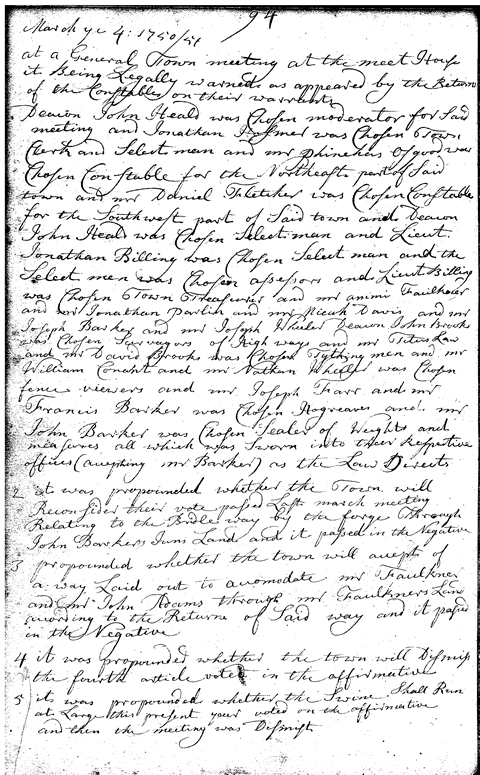 94
March ye 4: 1750/51
at a General Town meeting at the meet House
it Being Legally warned as appeared by the Return
of the Constables on their warrants
Deacon John Heald was Chosen moderator for Said
meeting and Jonathan Hosmer was Chosen Town
Clerk and Select man and mr Phinehas Osgood was
Chosen Constable for the Northeast part of Said
town and mr Daniel Fletcher was Chosen Constable
for the Southwest part of Said town and Deacon
John Heald was Chosen Select man and Lieut.
Jonathan Billing was Chosen Select man and the
Select men was Chosen assessors and Lieut Billing
was Chosen Town Treasurer and mr ammi Faulkner
and mr Jonathan Parlin and mr Micah Davis and mr
Joseph Barker and mr Joseph Wheeler Deacon John Brooks
was Chosen Survayors of High ways and mr Titus Law
and mr David Brooks was Chosen Tything men and mr
William Conant and mr Nathan Wheller was Chosen
fence viewers and mr Joseph Farr and mr
Francis Barker was Chosen Hogreaves and. mr
John Barker was Chosen Sealer of Weights and
measures all which was Sworn into their Respective
offices (accepting mr Barker) as the Law Directs
2 it was propounded whether the Town will
Reconsider their vote passed Last march meeting
Relating to the Bridle way by the forge Through
John Barkers Juns Land and it passed in the Negative
3 propounded whether the town will accept of
a way Laid out to acomodate mr Faulkner
and mr John Adams through mr Faulkners Land
acording to the Returne of Said way and it passed
in the Negative
4 it was propounded whether the town will Dismiss
the fourth article voted in the affirmative
5 it was propounded whether the Swine Shall Run
at Large this present year voted on the affirmative
and then the meeting was Dismist